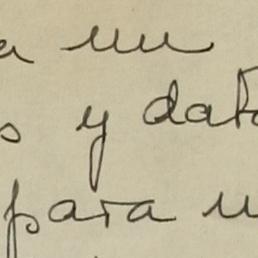 a un
s y dat
para u